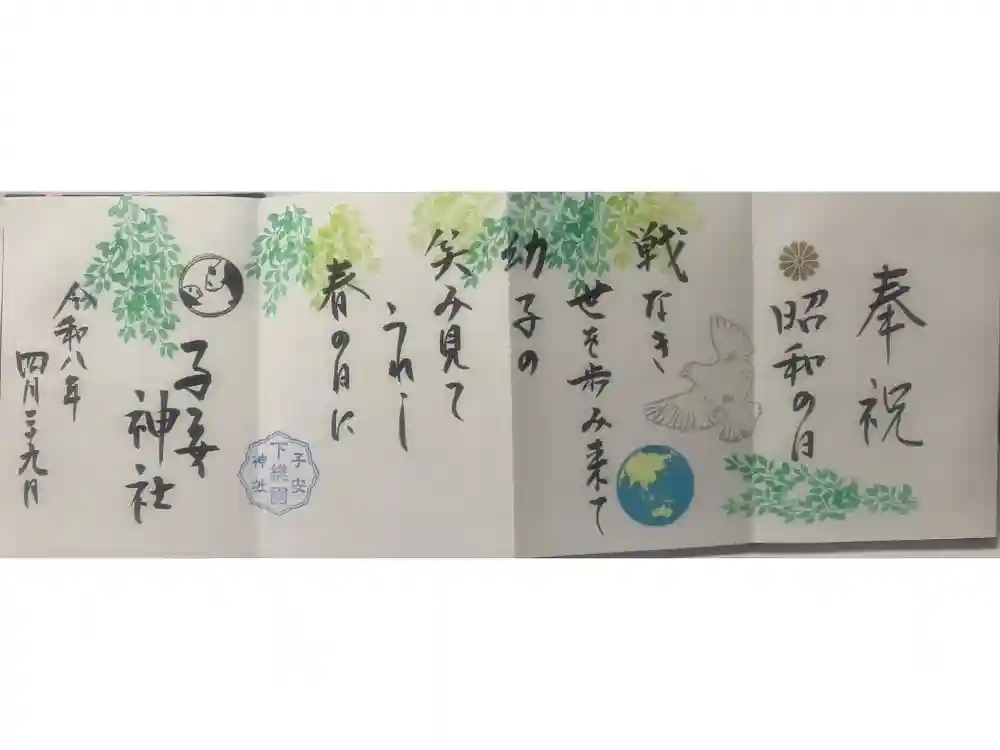 奉祝
昭和の日
戦なき
世を歩み来て
幼子の
笑み見て
うれし
春の日に
子安
下総國
神社
子安
神社
令和八年
四月二十九日